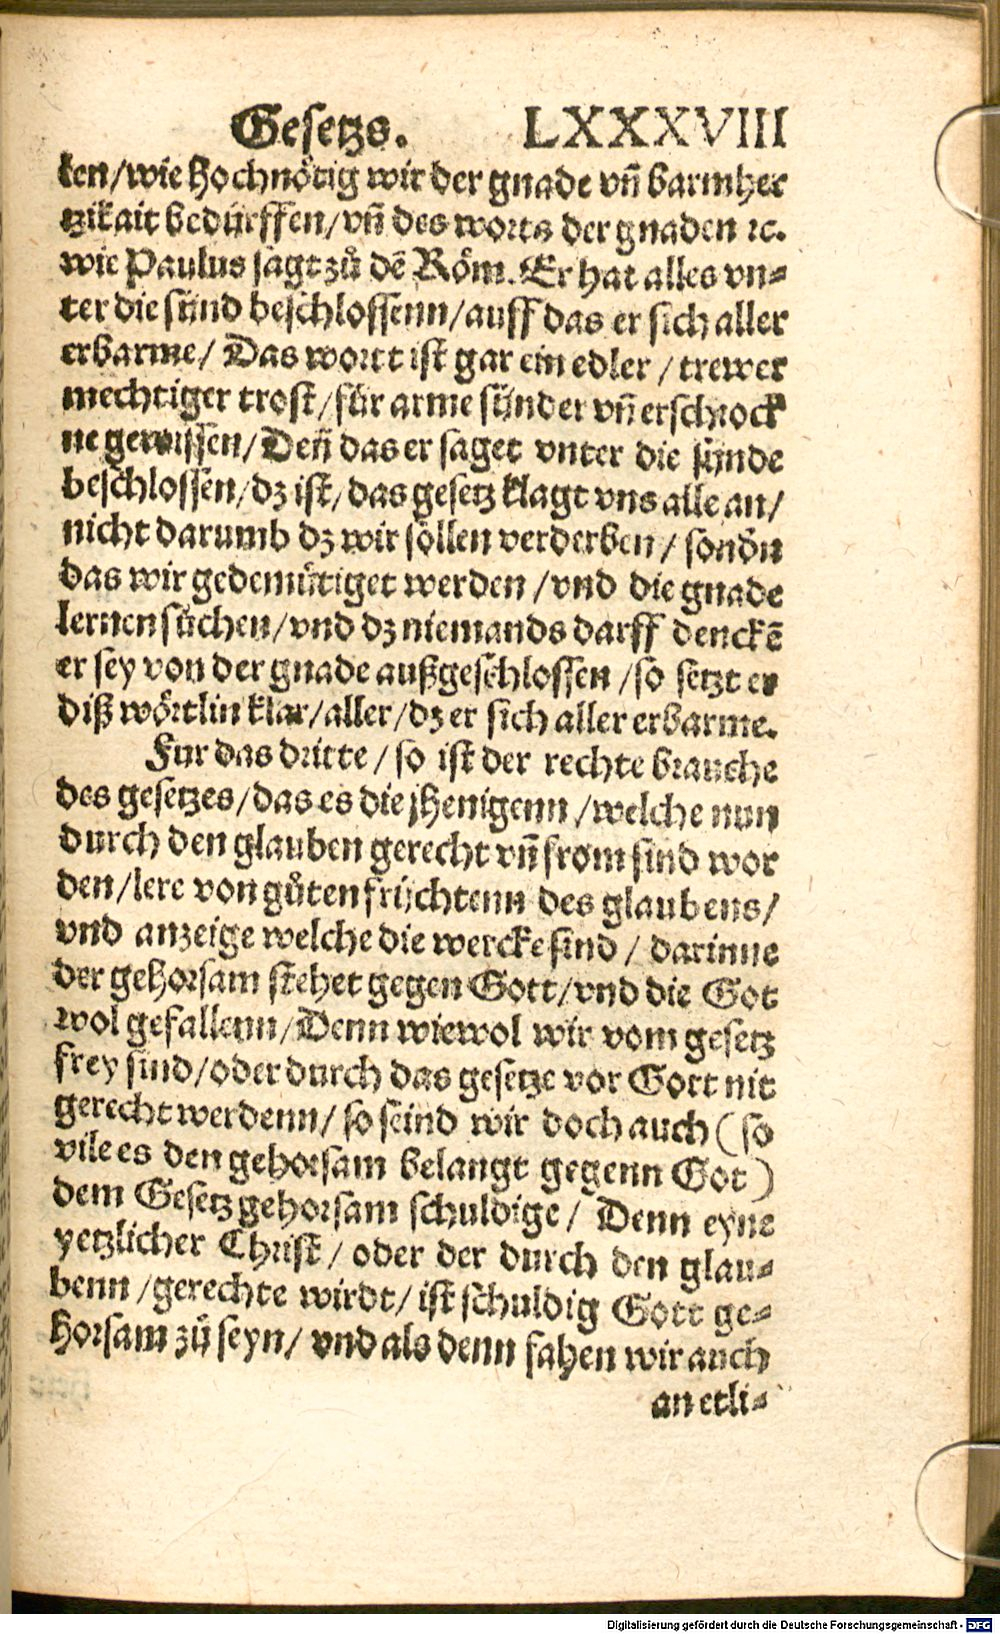 Gesetzs. LXXXVIII
ken/wie hochnötig wir der gnade vñ barmher
tzikait bedürffen/vñ des worts der gnaden ꝛc.
wie Paulus sagt zů dē Röm. Er hat alles vn⸗
ter die sünd beschlossenn/auff das er sich aller
erbarme/ Das wortt ist gar ein edler / trewer
mechtiger trost/für arme sünder vñ erschrock
ne gewissen/ Deñ das er saget vnter die sünde
beschlossen/dz ist/das gesetz klagt vns alle an/
nicht darumb dz wir söllen verderben/ sondn̄
das wir gedemütiget werden /vnd die gnade
lernen sůchen/vnd dz niemands darff denckē
er sey von der gnade außgeschlossen /so setzt er
diß wörtlin klar/aller/dz er sich aller erbarme.
Fur das dritte/ so ist der rechte brauche
des gesetzes/das es die jhenigenn /welche nun
durch den glauben gerecht vñ from sind wor
den/lere von gůten früchtenn des glaubens/
vnd anzeige welche die wercke sind/ darinne
der gehorsam stehet gegen Gott/vnd die Got
wol gefallenn/Denn wiewol wir vom gesetz
frey sind/oder durch das gesetze vor Gott nit
gerecht werdenn/ so seind wir doch auch (so
vile es den gehorsam belangt gegenn Got)
dem Gesetz gehorsam schuldige/ Denn eyne
yetzlicher Christ/ oder der durch den glau⸗
benn /gerechte wirdt/ ist schuldig Gott ge⸗
horsam zů seyn/ vnd als denn fahen wir auch
an etli⸗
Digitalisierung gefördert durch die Deutsche Forschungsgemeinschaft - DFG